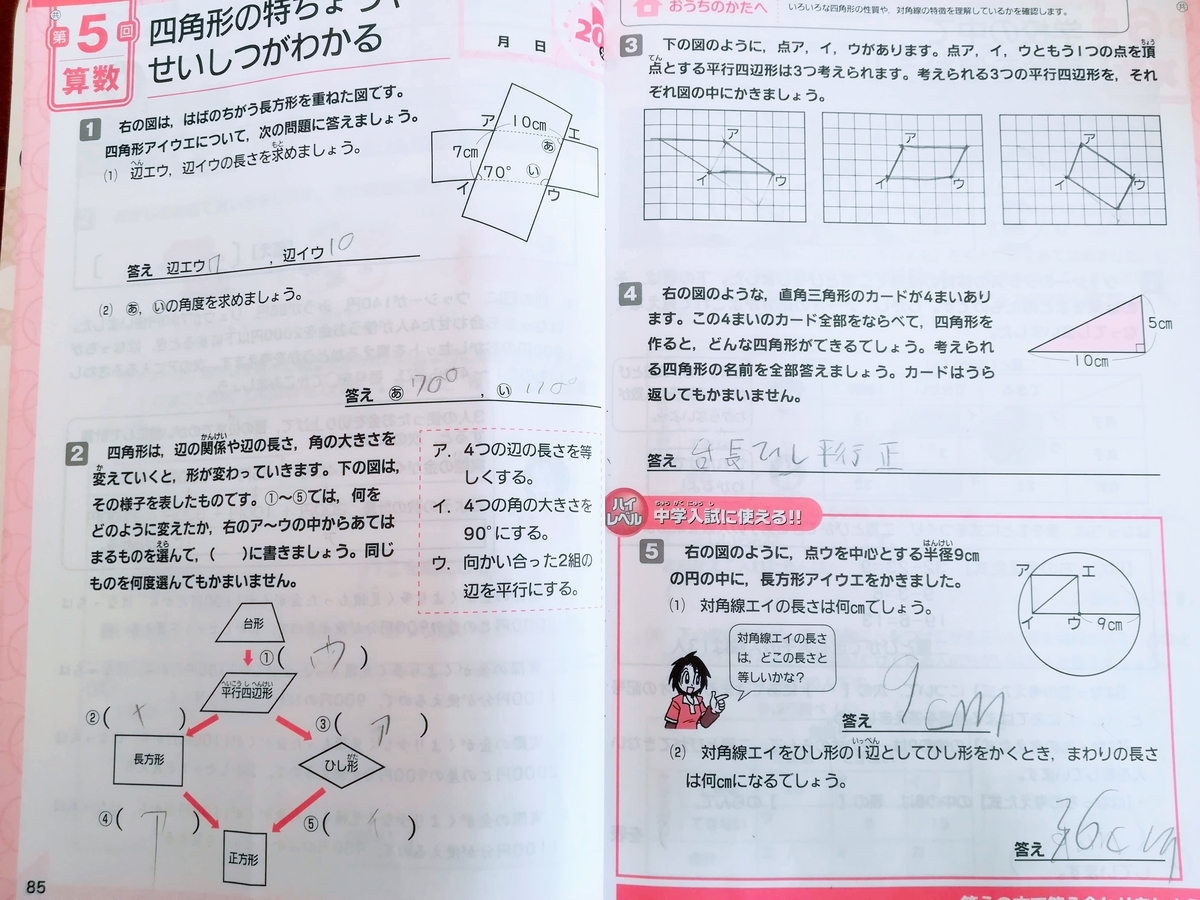 第5回
算数
四角形の特ちょうや
せいしつがわかる
月 日
20
1 右の図は，はばのちがう長方形を重ねた図です。
四角形アイウエについて，次の問題に答えましょう。
(1) 辺エウ，辺イウの長さを求めましょう。
ア 10cm エ
7cm あ
70° い
イ ウ
答え 辺エウ 7 ，辺イウ 10
(2) あ，いの角度を求めましょう。
答え あ 70° ，い 110°
2 四角形は，辺の関係や辺の長さ，角の大きさを
変えていくと，形が変わっていきます。下の図は，
その様子を表したものです。①～⑤では，何を
どのように変えたか，右のア～ウの中からあては
まるものを選んで，( )に書きましょう。同じ
ものを何度選んでもかまいません。
ア．4つの辺の長さを等
しくする。
イ．4つの角の大きさを
90°にする。
ウ．向かい合った2組の
辺を平行にする。
台形
①( ウ )
平行四辺形
②( イ ) ③( ア )
長方形 ひし形
④( ア ) ⑤( イ )
正方形
85
おうちのかたへ
いろいろな四角形の性質や，対角線の特徴を理解しているかを確認します。
3 下の図のように，点ア，イ，ウがあります。点ア，イ，ウともう1つの点を頂
点とする平行四辺形は3つ考えられます。考えられる3つの平行四辺形を，それ
ぞれ図の中にかきましょう。
ア ア ア
イ ウ イ ウ イ ウ
4 右の図のような，直角三角形のカードが4まいあり
ます。この4まいのカード全部をならべて，四角形を
作ると，どんな四角形ができるでしょう。考えられ
る四角形の名前を全部答えましょう。カードはうら
返してもかまいません。
5cm
10cm
答え 台 長 ひし 平行 正
ハイレベル 中学入試に使える!!
5 右の図のように，点ウを中心とする半径9cm
の円の中に，長方形アイウエをかきました。
(1) 対角線エイの長さは何cmでしょう。
ア エ
イ ウ 9cm
対角線エイの長さ
は，どこの長さと
等しいかな？
答え 9cm
(2) 対角線エイをひし形の1辺としてひし形をかくとき，まわりの長さ
は何cmになるでしょう。
答え 36cm